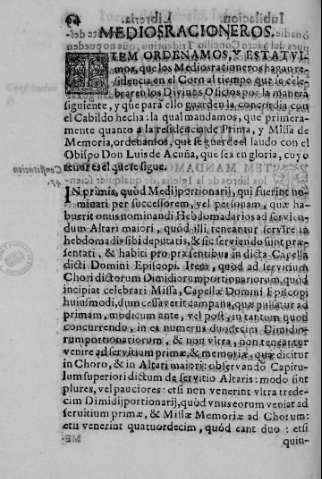 64
MEDIOSRACIONEROS.
ITEM ORDENAMOS, Y ESTATVI-
mos, que los Mediosracioneros hagan re-
sidencia en el Coro al tiempo que se cele-
braren los Divinos Oficios por la manera
siguiente, y que para ello guarden la concordia con
el Cabildo hecha: la qual mandamos, que primera-
mente quanto a la residencia de Prima, y Missa de
Memoria, ordenamos, que se guarde el laudo con el
Obispo Don Luis de Acuña, que sea en gloria, cuyo
tenor es el que se sigue.
Constitucion
IN primis, quòd Medijportionarij, qui fuerint no-
minati per successorem, vel personam, quæ ha-
buerit onus nominandi Hebdomadarios ad servien-
dum Altari maiori, quòd illi teneantur servire in
hebdoma divisibi deputatis, & sic serviendo sunt præ-
sentati, & habiti pro præsentibus in dicta Capella
dicti Domini Episcopi. Item, quòd ad servitium
Chori dictorum Dimidiorumportionariorum, quòd
incipiat celebrari Missa, Capellæ Domini Episcopi
huiusmodi, dum cessaverit campana, quæ pulsatur ad
primam, modicum ante, vel post, in tantum quod
concurrendo, in ea numerus duodecim Dimidio-
rumportionatiorum, & non vltra, non teneantur
venire ad servitium primæ, & memoriæ, quæ dicitur
in Choro, & in Altari maiori: observando Capitu-
lum superiori dictum de servitio Altaris: modo sint
plures, vel pauciores: etsi non venerint vltra trede-
cim Dimidijportionarij, quòd vnus eorum veniat ad
servitium primæ, & Missæ Memoriæ ad Chorum:
etti venerint quatuordecim, quòd eant duo: etsi
quin-